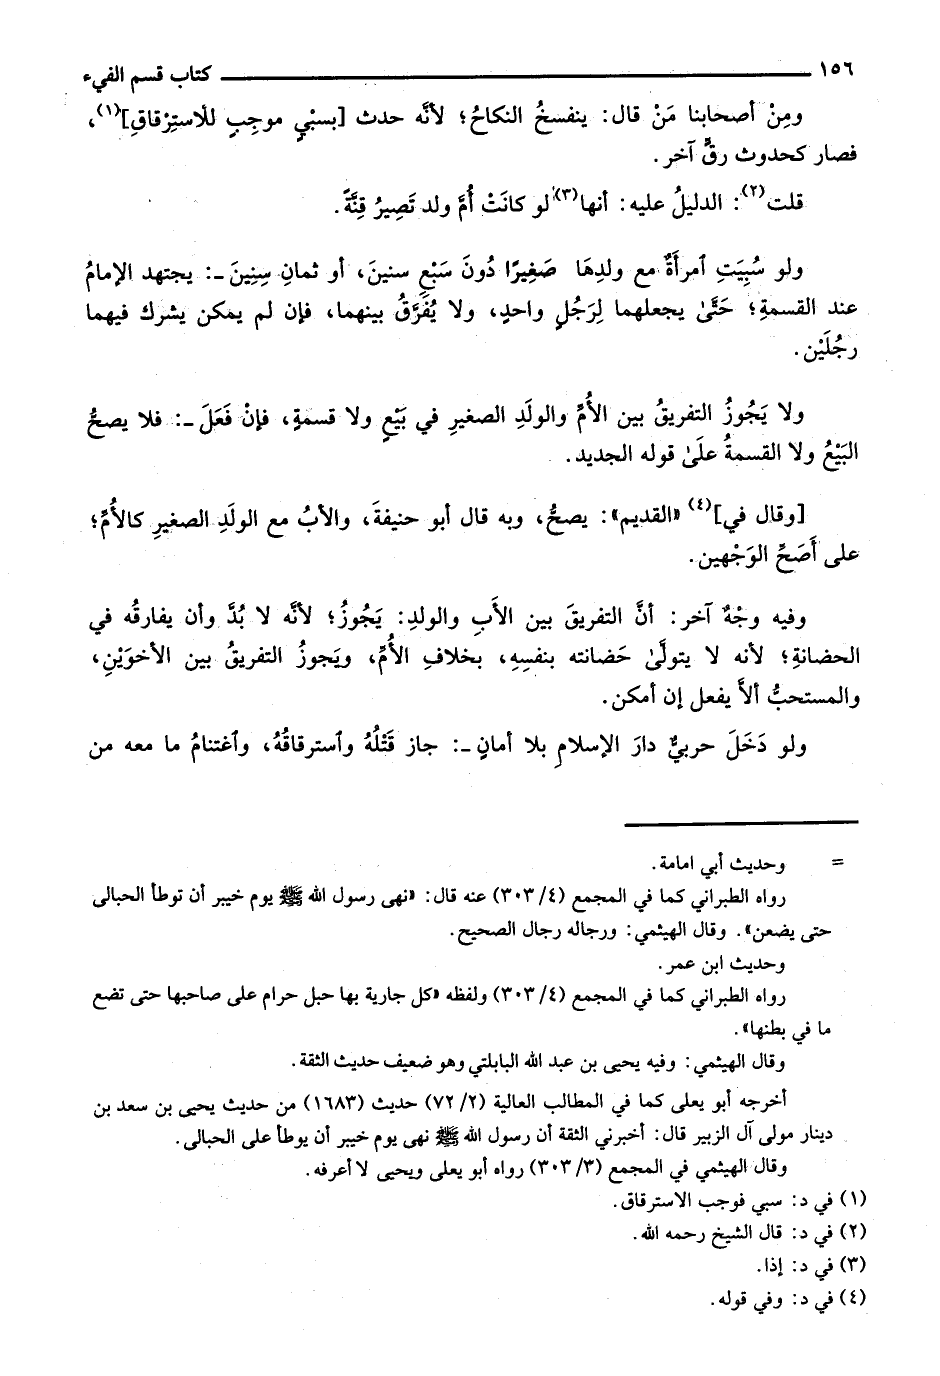 ١٥٦ كتاب قسم الفيء
ومِنْ أصحابنا مَنْ قال: ينفسخُ النكاحُ؛ لأنَّه حدث [بسبْيٍ موجِبٍ للاستِرْقاقِ]⁽¹⁾،
فصار كحدوث رقٍّ آخر.
قلت⁽²⁾: الدليلُ عليه: أنها⁽³⁾ لو كانَتْ أُمَّ ولد تَصِيرُ قِنَّةً.
ولو سُبِيَتِ ٱمرأَةٌ مع ولدِهَا صَغِيرًا دُونَ سَبْعِ سنينَ، أو ثمانِ سِنِينَ ــ: يجتهد الإمامُ
عند القسمةِ؛ حَتَّىٰ يجعلهما لِرَجُلٍ واحدٍ، ولا يُفَرَّقُ بينهما، فإن لم يمكن يشرك فيهما
رجُلَيْن.
ولا يَجُوزُ التفريقُ بين الأُمِّ والولَدِ الصغيرِ في بَيْعٍ ولا قسمةٍ، فإنْ فَعَلَ ــ: فلا يصحُّ
البَيْعُ ولا القسمةُ علَىٰ قوله الجديد.
[وقال في]⁽⁴⁾ «القديم»: يصحُّ، وبه قال أبو حنيفةَ، والأبُ مع الولَدِ الصغيرِ كالأُمِّ؛
على أَصَحِّ الوَجْهين.
وفيه وجْهٌ آخر: أنَّ التفريقَ بين الأَبِ والولدِ: يَجُوزُ؛ لأنَّه لا بُدَّ وأن يفارقُه في
الحضانةِ؛ لأنه لا يتولَّىٰ حَضانته بنفسِهِ، بخلافِ الأُمِّ، ويَجوزُ التفريقُ بين الأخوَيْنِ،
والمستحبُّ ألاَّ يفعل إن أمكن.
ولو دَخَلَ حربيٌّ دارَ الإسلامِ بلا أمانٍ ــ: جاز قَتْلُهُ وٱسترقاقُهُ، وٱغتنامُ ما معه من
= وحديث أبي امامة.
رواه الطبراني كما في المجمع (٤/ ٣٠٣) عنه قال: «نهى رسول الله ﷺ يوم خيبر أن توطأ الحبالى
حتى يضعن». وقال الهيثمي: ورجاله رجال الصحيح.
وحديث ابن عمر.
رواه الطبراني كما في المجمع (٤/ ٣٠٣) ولفظه «كل جارية بها حبل حرام على صاحبها حتى تضع
ما في بطنها».
وقال الهيثمي: وفيه يحيى بن عبد الله البابلتي وهو ضعيف حديث الثقة.
أخرجه أبو يعلى كما في المطالب العالية (٢/ ٧٢) حديث (١٦٨٣) من حديث يحيى بن سعد بن
دينار مولى آل الزبير قال: أخبرني الثقة أن رسول الله ﷺ نهى يوم خيبر أن يوطأ على الحبالى.
وقال الهيثمي في المجمع (٣/ ٣٠٣) رواه أبو يعلى ويحيى لا أعرفه.
(١) في د: سبي فوجب الاسترقاق.
(٢) في د: قال الشيخ رحمه الله.
(٣) في د: إذا.
(٤) في د: وفي قوله.